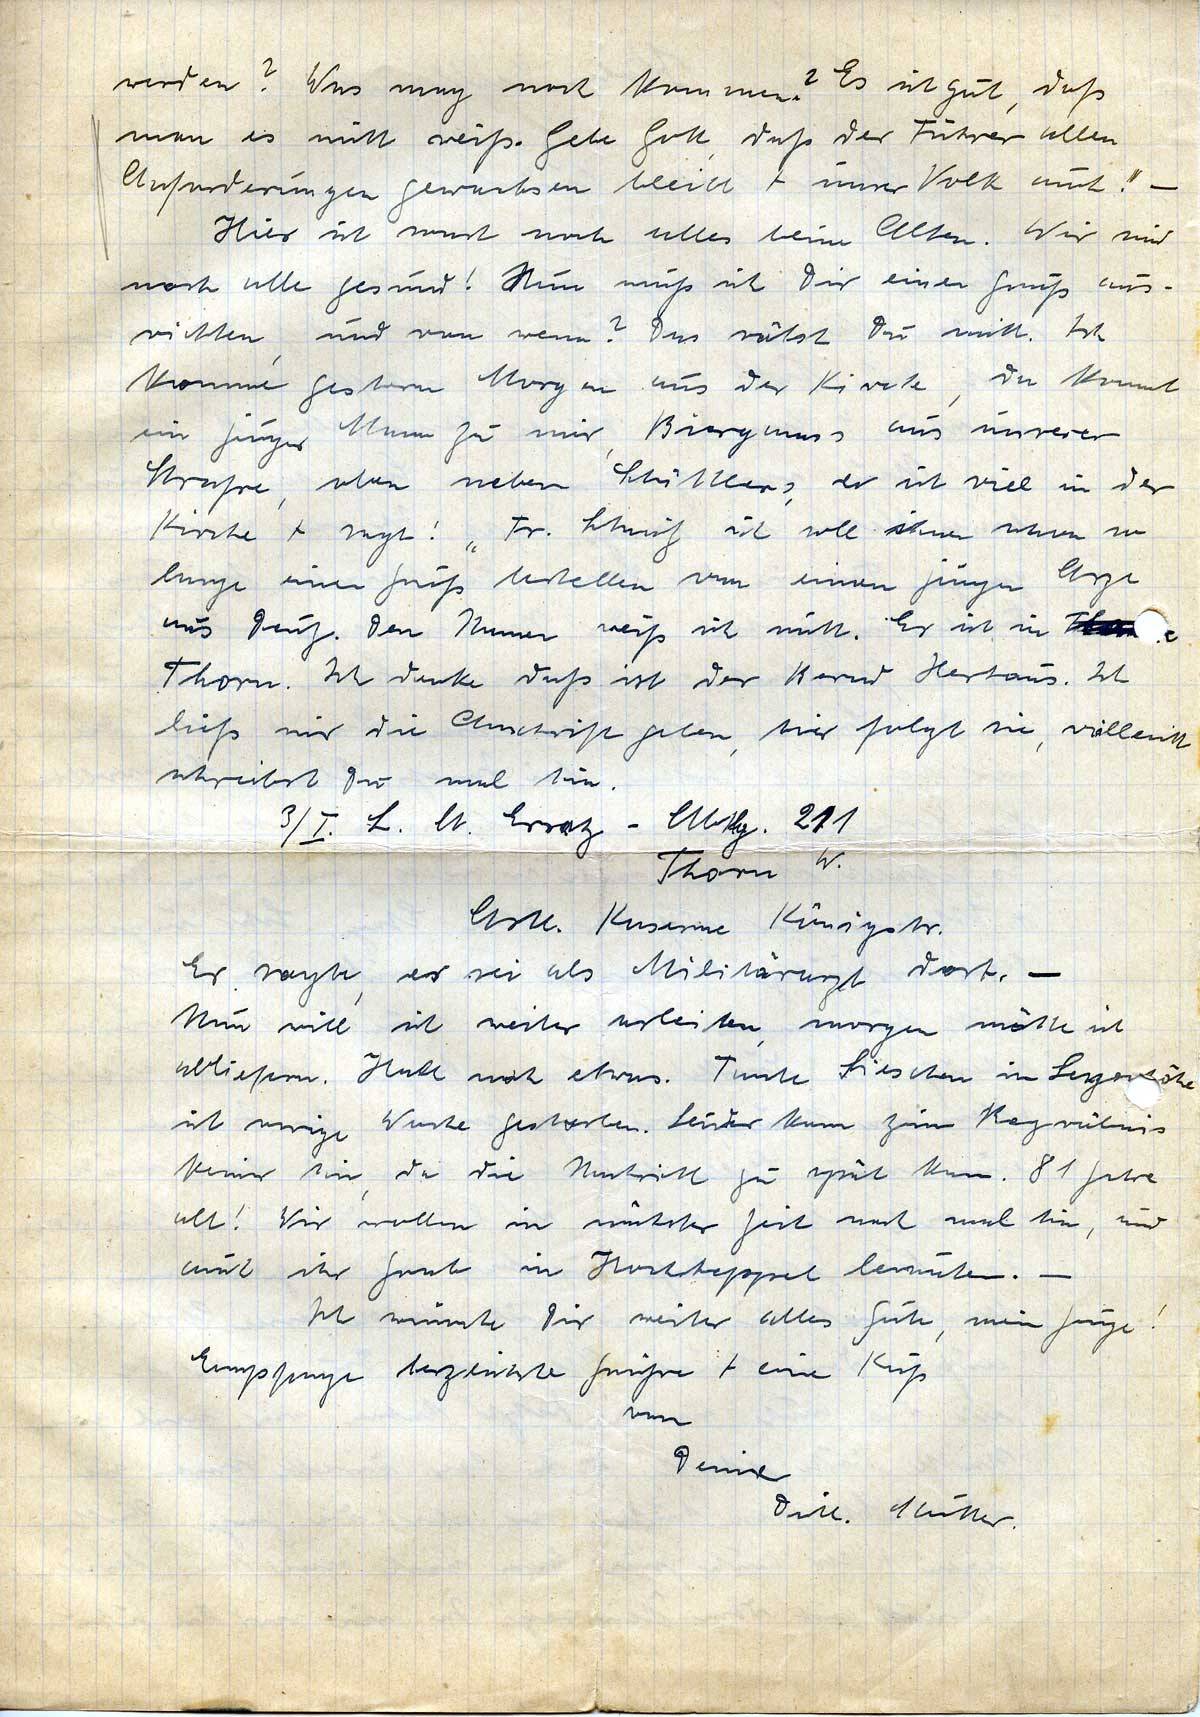 werden? Was mag noch kommen? Es ist gut, daß
man es nicht weiß. Gebe Gott, daß der Führer allen
Anforderungen gewachsen bleibt + unser Volk auch!" —
Hier ist sonst noch alles beim Alten. Wir sind
noch alle gesund! Nun muß ich Dir einen Gruß aus-
richten, und von wem? Das rätst Du nicht. Ich
komme gestern Morgen aus der Kirche, da kommt
ein junger Mann zu mir, Biergans aus unserer
Strasse, oben neben, er ist viel in der
Kirche + sagt: „Fr. ich soll ihnen schon so
lange einen Gruß bestellen von einem jungen Arzt
aus Deutz. Den Namen weiß ich nicht. Er ist in
Thorn. Ich denke daß ist der Bernd Hertaus. Ich
ließ mir die Anschrift geben, hier folgt sie, vielleicht
schreibst Du mal hin.
3/I. L. A. Ersatz - Abtlg. 211
Thorn W.
Artl. Kaserne Königstr.
Er sagte, er sei als Militärarzt dort. —
Nun will ich weiter arbeiten, morgen möchte ich
abliefern. Halt noch etwas. Tante Lieschen in
ist vorige Woche gestorben. Leider kam zum Begräbnis
keiner hin, da die Nachricht zu spät kam. 81 Jahre
alt! Wir wollen in nächster Zeit noch mal hin, und
auch ihr Grab in Hochkeppel besuchen. —
Ich wünsche Dir weiter alles Gute, mein Junge!
Empfange herzlichste Grüsse + eine Kuß
von
Deiner
Dich. Mutter.